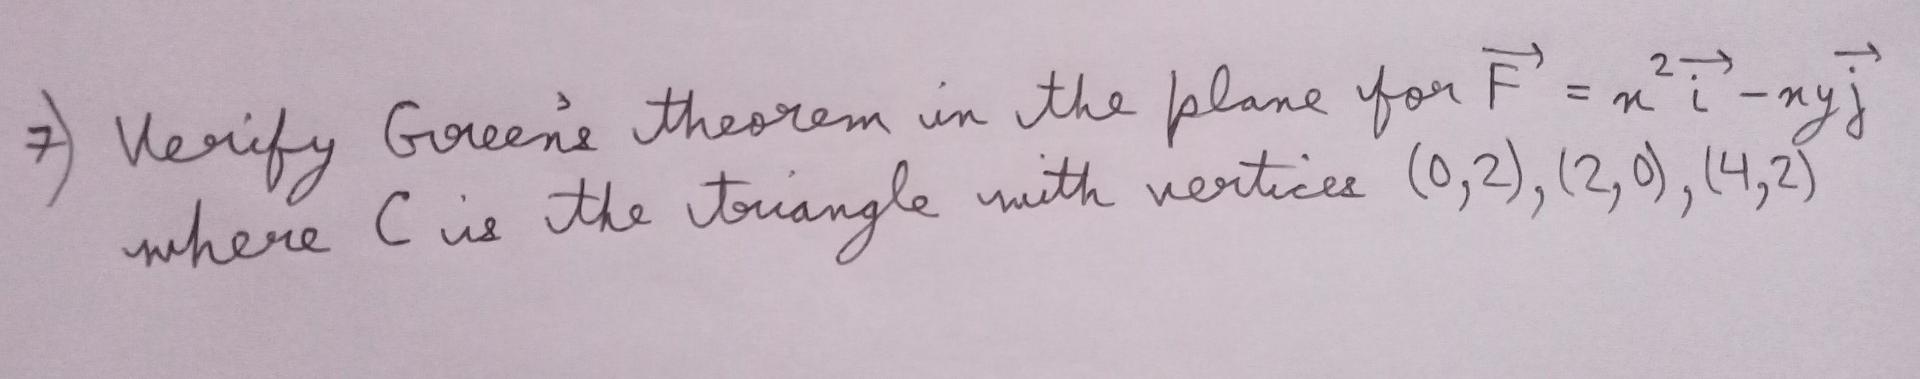 7) Verify Green's theorem in the plane for F⃗ = x² i⃗ - xy j⃗
where C is the triangle with vertices (0,2), (2,0), (4,2)